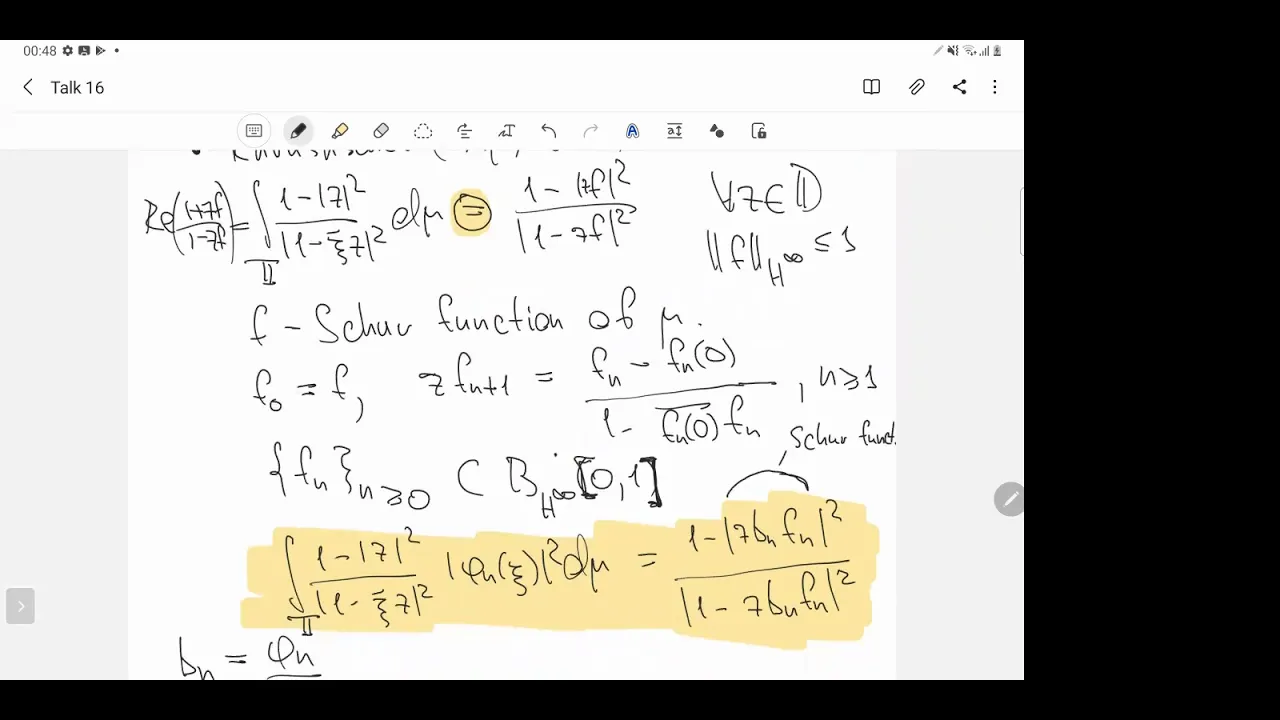 00:48
Talk 16
Re((1+zf)/(1-zf)) = ∫_𝕋 (1-|z|²)/|1-ξ̄z|² dμ = (1-|zf|²)/|1-zf|² ∀z∈𝔻
‖f‖_{H^∞} ≤ 1
f - Schur function of μ.
f₀ = f, z f_{n+1} = (f_n - f_n(0))/(1 - \overline{f_n(0)} f_n), n≥1
Schur funct.
{f_n}_{n≥0} ⊂ B_{H^∞}[0,1]
∫_𝕋 (1-|z|²)/|1-ξ̄z|² |φ_n(ξ)|² dμ = (1-|z b_n f_n|²)/|1-z b_n f_n|²
b_n = φ_n